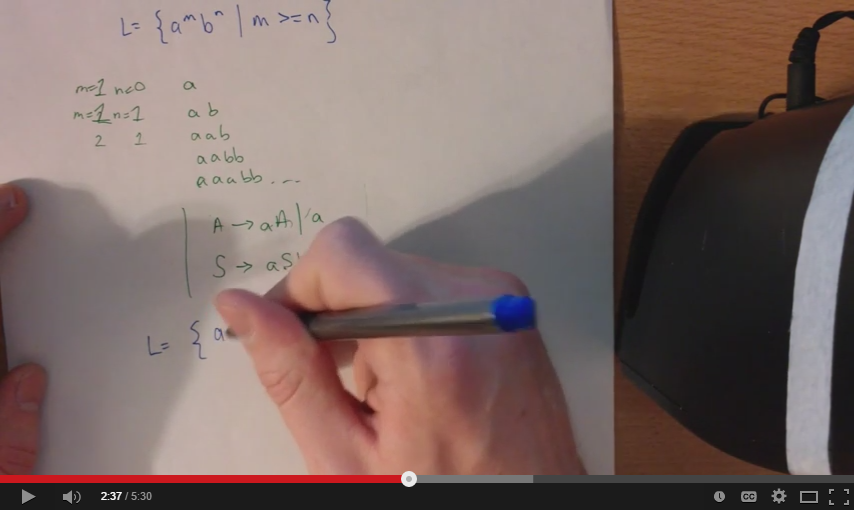 L= {a^m b^n | m >= n}
m=1 n=0 a
m=1 n=1 ab
2 1 aab
aabb
aaabb....
A → aA | a
S → aS
L= { a
2:37 / 5:30
CC